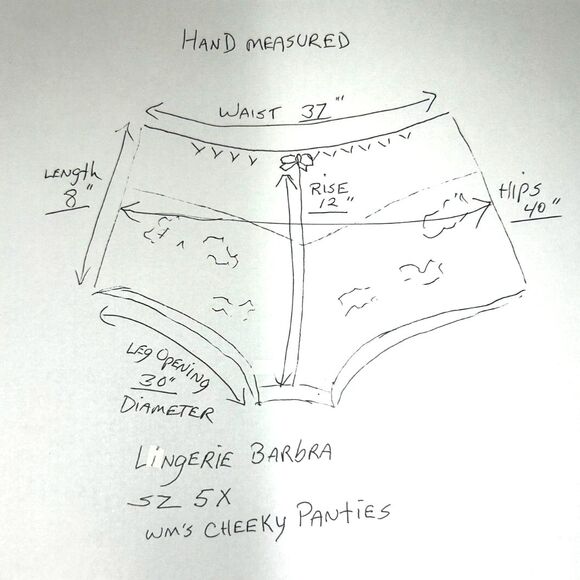 HAND MEASURED
WAIST 37"
LENGTH 8"
RISE 12"
HIPS 40"
LEG OPENING 30" DIAMETER
LINGERIE BARBRA
SZ 5X
WM'S CHEEKY PANTIES